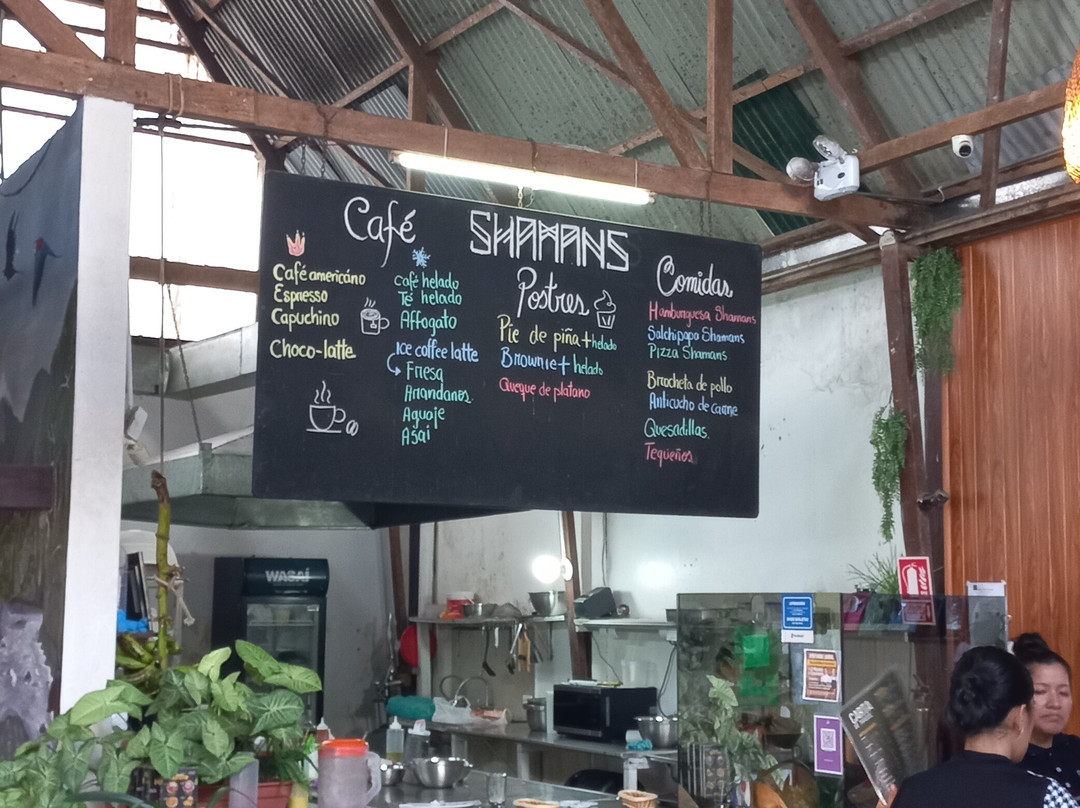 Café
Café americáno
Espresso
Capuchino
Choco-latte
café helado
Té helado
Affogato
Ice coffee latte
Fresa
Arandanos
Aguaje
Asai
SHAMANS
Postres
Pie de piña + helado
Brownie + helado
Queque de platano
Comidas
Hamburguesa Shamans
Salchipapa Shamans
Pizza Shamans
Brocheta de pollo
Anticucho de carne
Quesadillas
Tequeños
WASAÍ
CARTA